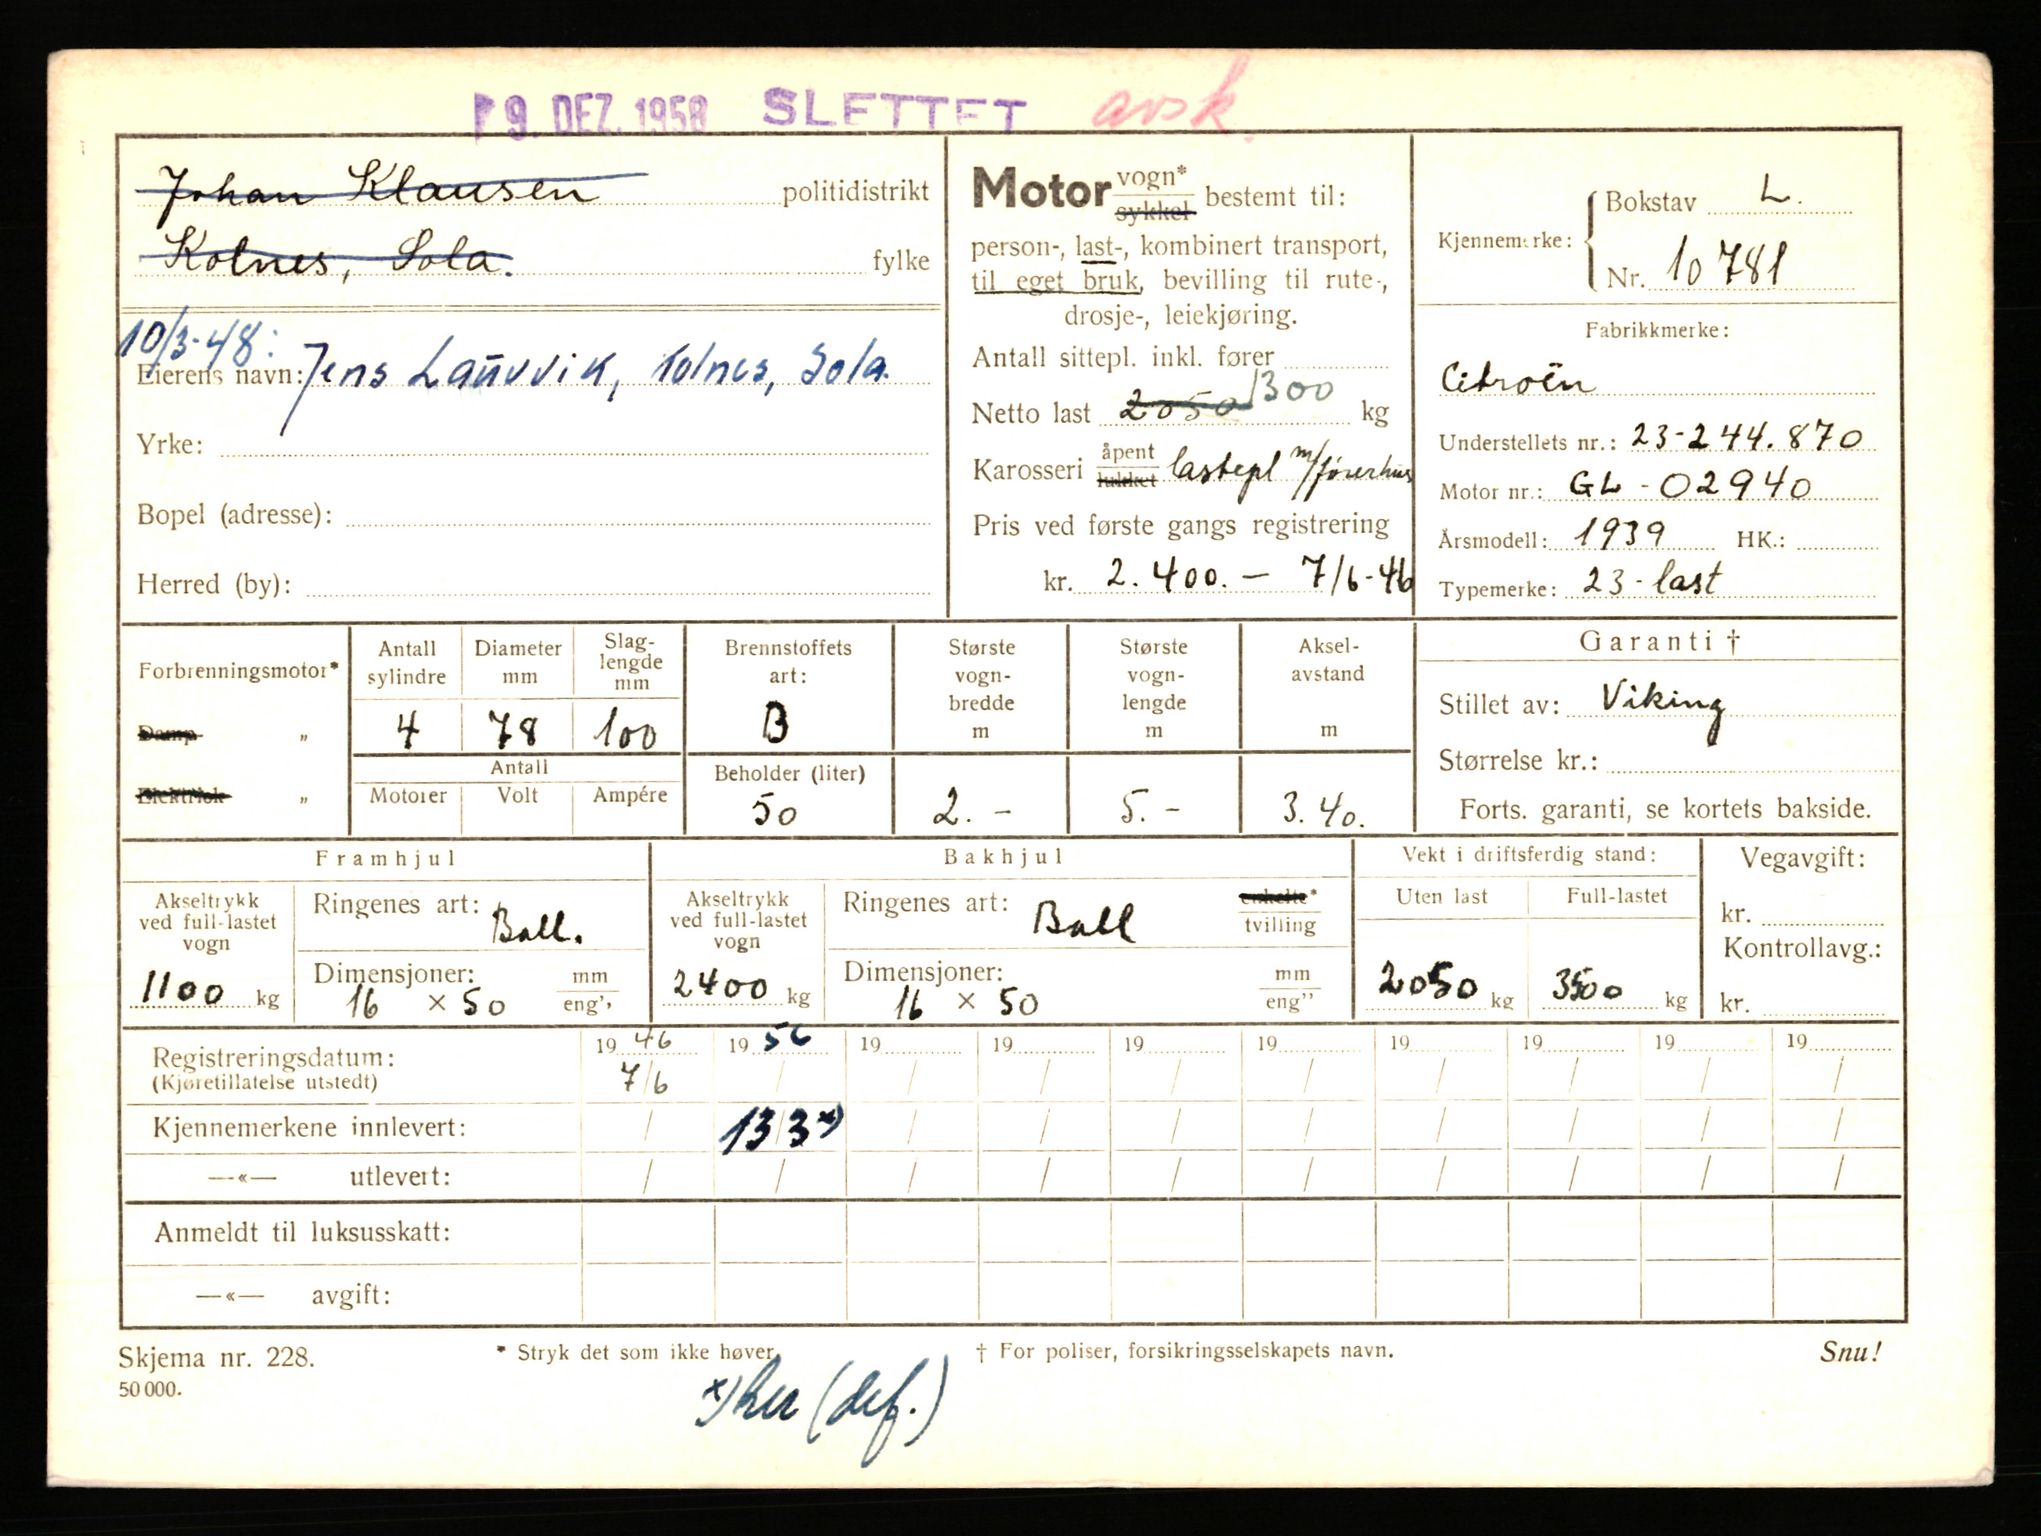 9. DEZ. 1958 SLETTET avsk.
Johan Klausen politidistrikt
Kolnes, Sola. fylke
10/3-48:
Eierens navn: Jens Laŭvvik, Tolnes, Sola.
Yrke:
Bopel (adresse):
Herred (by):
Motor vogn* sykkel bestemt til:
person-, last-, kombinert transport,
til eget bruk, bevilling til rute-,
drosje-, leiekjøring.
Antall sittepl. inkl. fører
Netto last 2050 1300 kg
Karosseri åpent lukket lastepl m/førerhus
Pris ved første gangs registrering
kr. 2.400.- 7/6-46
Kjennemerke: Bokstav L.
Nr. 10781
Fabrikkmerke:
Citroën
Understellets nr.: 23-244.870
Motor nr.: GL-02940
Årsmodell: 1939 HK.:
Typemerke: 23-last
Forbrenningsmotor*
Damp „
Elektrisk „
Antall sylindre
4
Diameter mm
78
Slag-
lengde
mm
100
Antall
Motorer Volt Ampére
Brennstoffets
art:
B
Beholder (liter)
50
Største
vogn-
bredde
m
2.-
Største
vogn-
lengde
m
5.-
Aksel-
avstand
m
3.40.
Garanti †
Stillet av: Viking
Størrelse kr.:
Forts. garanti, se kortets bakside.
Framhjul
Akseltrykk
ved full-lastet
vogn
1100 kg
Ringenes art: Ball.
Dimensjoner: mm
16 × 50 eng''
Bakhjul
Akseltrykk
ved full-lastet
vogn
2400 kg
Ringenes art: Ball enkelte* tvilling
Dimensjoner: mm
16 × 50 eng''
Vekt i driftsferdig stand:
Uten last Full-lastet
2050 kg 3500 kg
Vegavgift:
kr.
Kontrollavg.:
kr.
Registreringsdatum: 19 46 19 56 19 19 19 19 19 19 19 19
(Kjøretillatelse utstedt) 7/6 / / / / / / / / /
Kjennemerkene innlevert: / 13/3 x) / / / / / / / /
—«— utlevert: / / / / / / / / / /
Anmeldt til luksusskatt:
—«— avgift:
Skjema nr. 228. * Stryk det som ikke høver. † For poliser, forsikringsselskapets navn. Snu!
50 000.
x) her (def.)